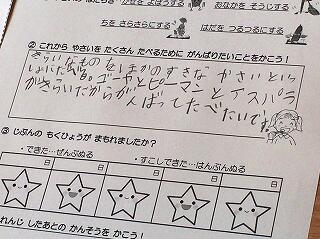 かぜを よぼうする
おなかを そうじする
ちを さらさらにする
はだを つるつるにする
② これから やさいを たくさん たべるために がんばりたいことをかこう!
きらいなものを ほかのすきな やさいといっ
しょにたべる。ゴーヤとピーマンとアスパラ
がきらいだからがんばってたべたいです。
③ じぶんの もくひょうが まもれましたか?
・できた…ぜんぶぬる
・すこしできた…はんぶんぬる
日
日
日
日
日
れんじ したあとの かんそうを かこう!